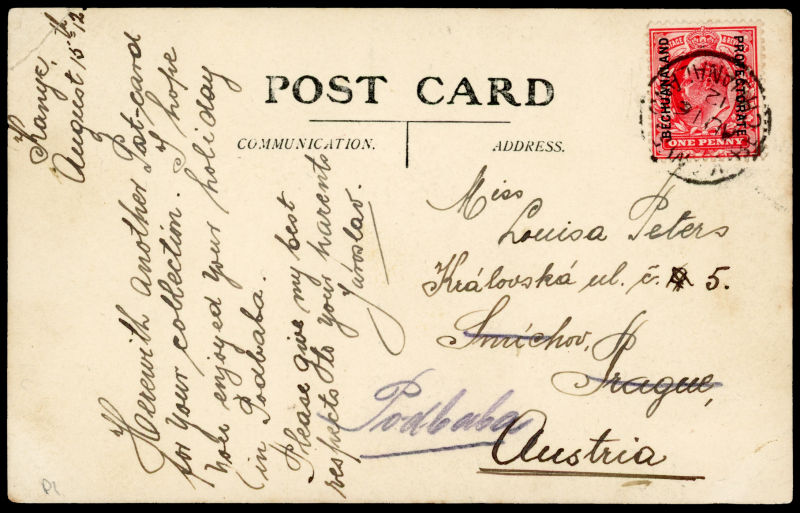 Kanye,
August 15th 12.
Herewith another Post-card
for your collection. I hope
you enjoyed your holiday
in Podbaba.
Please give my best
respects to your parents
Jaroslav.
POST CARD
COMMUNICATION.
ADDRESS.
BECHUANALAND
PROTECTORATE
POSTAGE
ONE PENNY
Miss
Louisa Peters
Královská ul. č. 5.
Smíchov,
Prague,
Podbaba
Austria